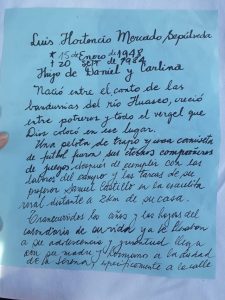 Luis Hortencio Mercado Sepúlveda
* 15 de Enero de 1948
+ 20 Sept de 1984
Hijo de Daniel y Carlina
Nació entre el canto de las
bandurrias del río Huasco, creció
entre potreros y todo el vergel que
Dios colocó en ese lugar.
Una pelota de trapo y una camiseta
de futbol fueron sus compañeros
de juegos después de cumplir con las
labores del campo y las tareas de su
profesor Samuel Castillo en la escuelita
rural distante a 2km de su casa.
Transcurridos los años y las hojas del
calendario de su vida ya le llevaron
a su adolescencia y juventud llega
con su madre y hermanos a la ciudad
de la Serena, específicamente a la calle